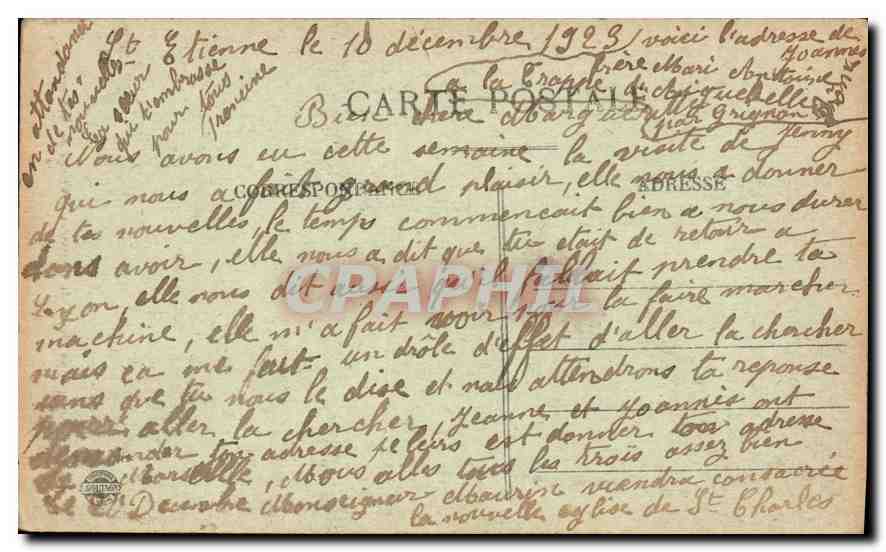 St Etienne le 10 décembre 1923 voici l'adresse de Joannes
frère Mari Antoine
a la Trappe d'Aiguebelle
par Grignan
CARTE POSTALE
Bien chère Marg
Nous avons eu cette semaine la visite de Jenny
qui nous a fait grand plaisir, elle nous a donner
CORRESPONDANCE
ADRESSE
de tes nouvelles, le temps commencait bien a nous durer
sans avoir, elle nous a dit que tu etait de retour a
Lyon, elle nous dit aussi qu'il fallait prendre ta
machine, elle m'a fait voir pour la faire marcher
mais ça me fait un drôle d'effet d'aller la chercher
sans que tu nous le dise et nous attendrons ta reponse
pour aller la chercher, Jeanne et Joannès ont
demander ton adresse je leurs est donner ton adresse
de Marseille, Nous alles tous les trois assez bien
le Decembre Monseigneur Maurin viendra consacrée
la nouvelle eglise de St Charles
en attendant
de tes nouvelles
ta sœur
qui t'embrasse
pour tous
Francine
CPAPHIL